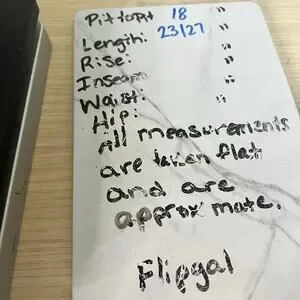 Pit to Pit 18 "
Length: 23/27 "
Rise: "
Inseam: "
Waist: "
Hip:
All measurements
are taken flat
and are
approximate.
Flipgal